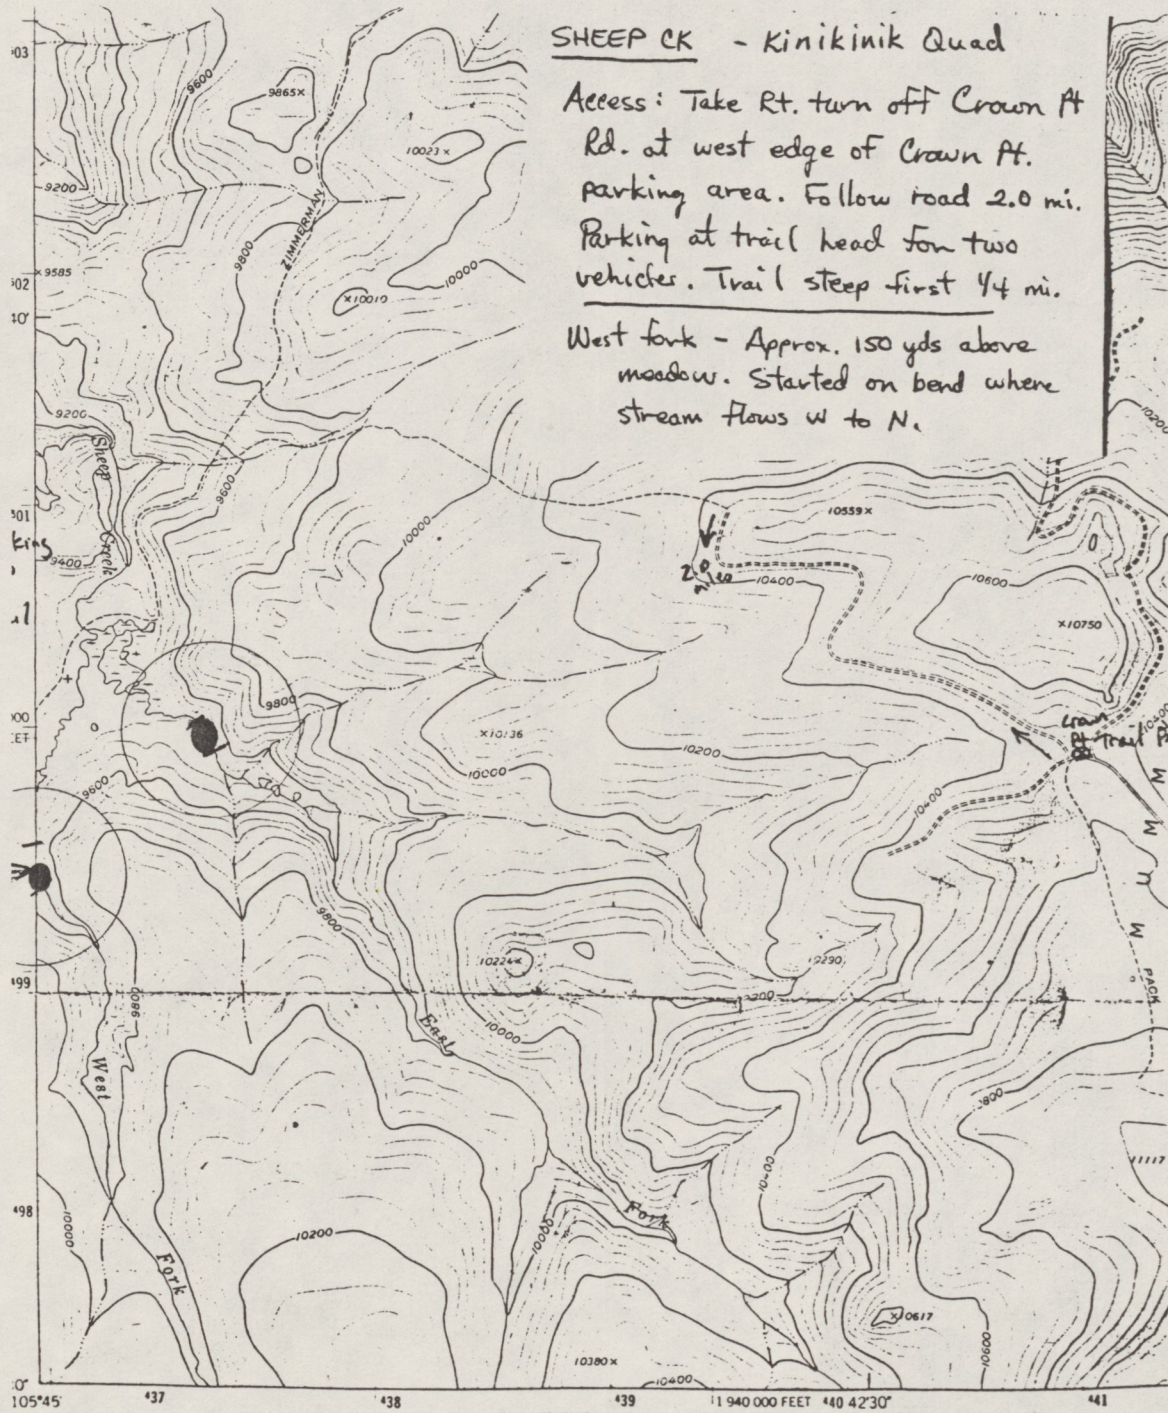 SHEEP CK - Kinikinik Quad
Access: Take Rt. turn off Crown Pt
Rd. at west edge of Crown Pt.
parking area. Follow road 2.0 mi.
Parking at trail head for two
vehicles. Trail steep first 1/4 mi.
West fork - Approx. 150 yds above
meadow. Started on bend where
stream flows W to N.
9600
9865×
10023×
9200
ZIMMERMAN
9800
×9585
10000
×10010
40'
10200
9200
Sheep
Creek
9600
10000
10559×
9400
2.0
10400
10600
×10750
9800
×10136
10200
10000
Crown
Pt Trail
10400
9600
10400
M
M
U
M
9800
10224×
10290
PACK
9800
10000
East
West
800
11117
10400
10000
10200
Fork
10000
Fork
×10617
10600
10380×
10400
105°45'
437
438
439
1 940 000 FEET
440
42'30"
441